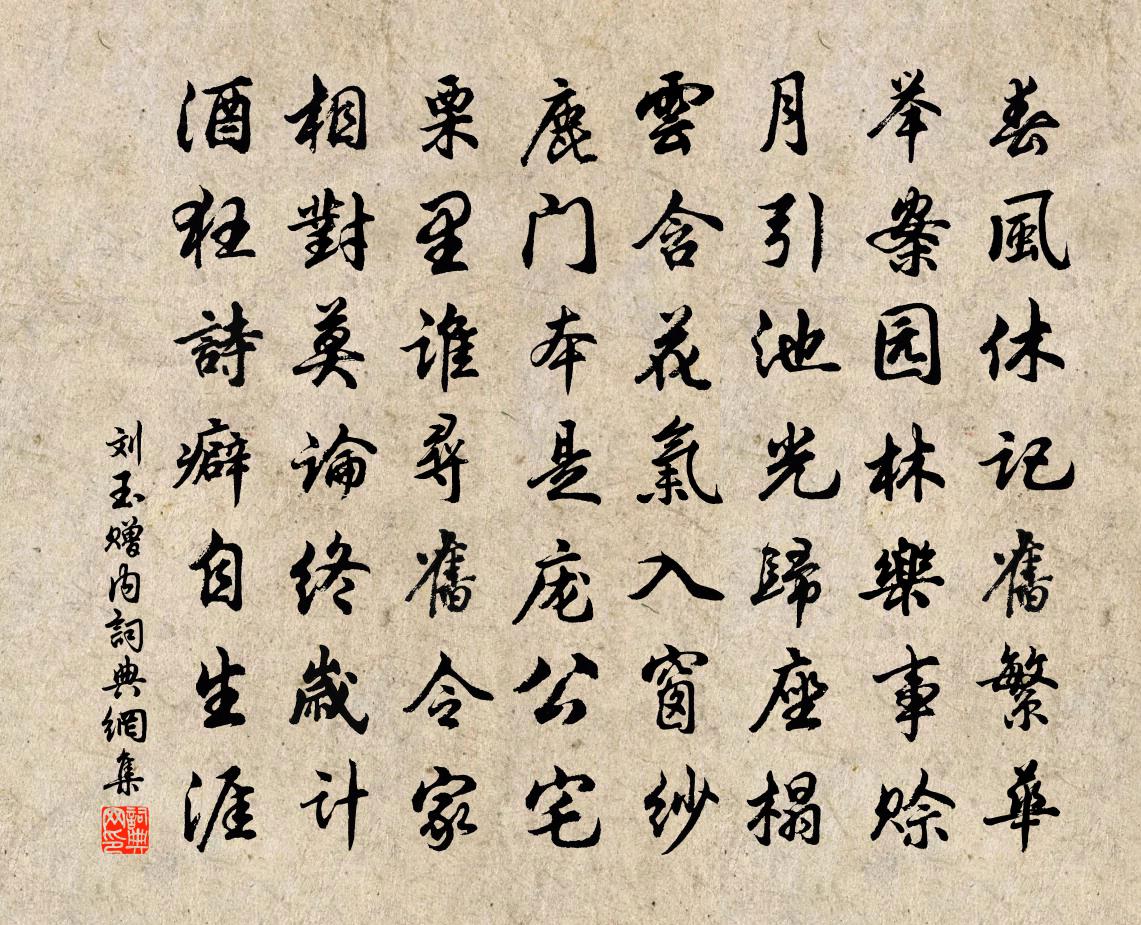 春風休記舊繁華
举案园林樂事賒
月引池光歸座榻
雲含花氣入窗紗
鹿门本是庞公宅
栗里谁尋舊令家
相對莫論終歲计
酒狂詩癖自生涯
刘玉赠内詞典網集
詞典网印